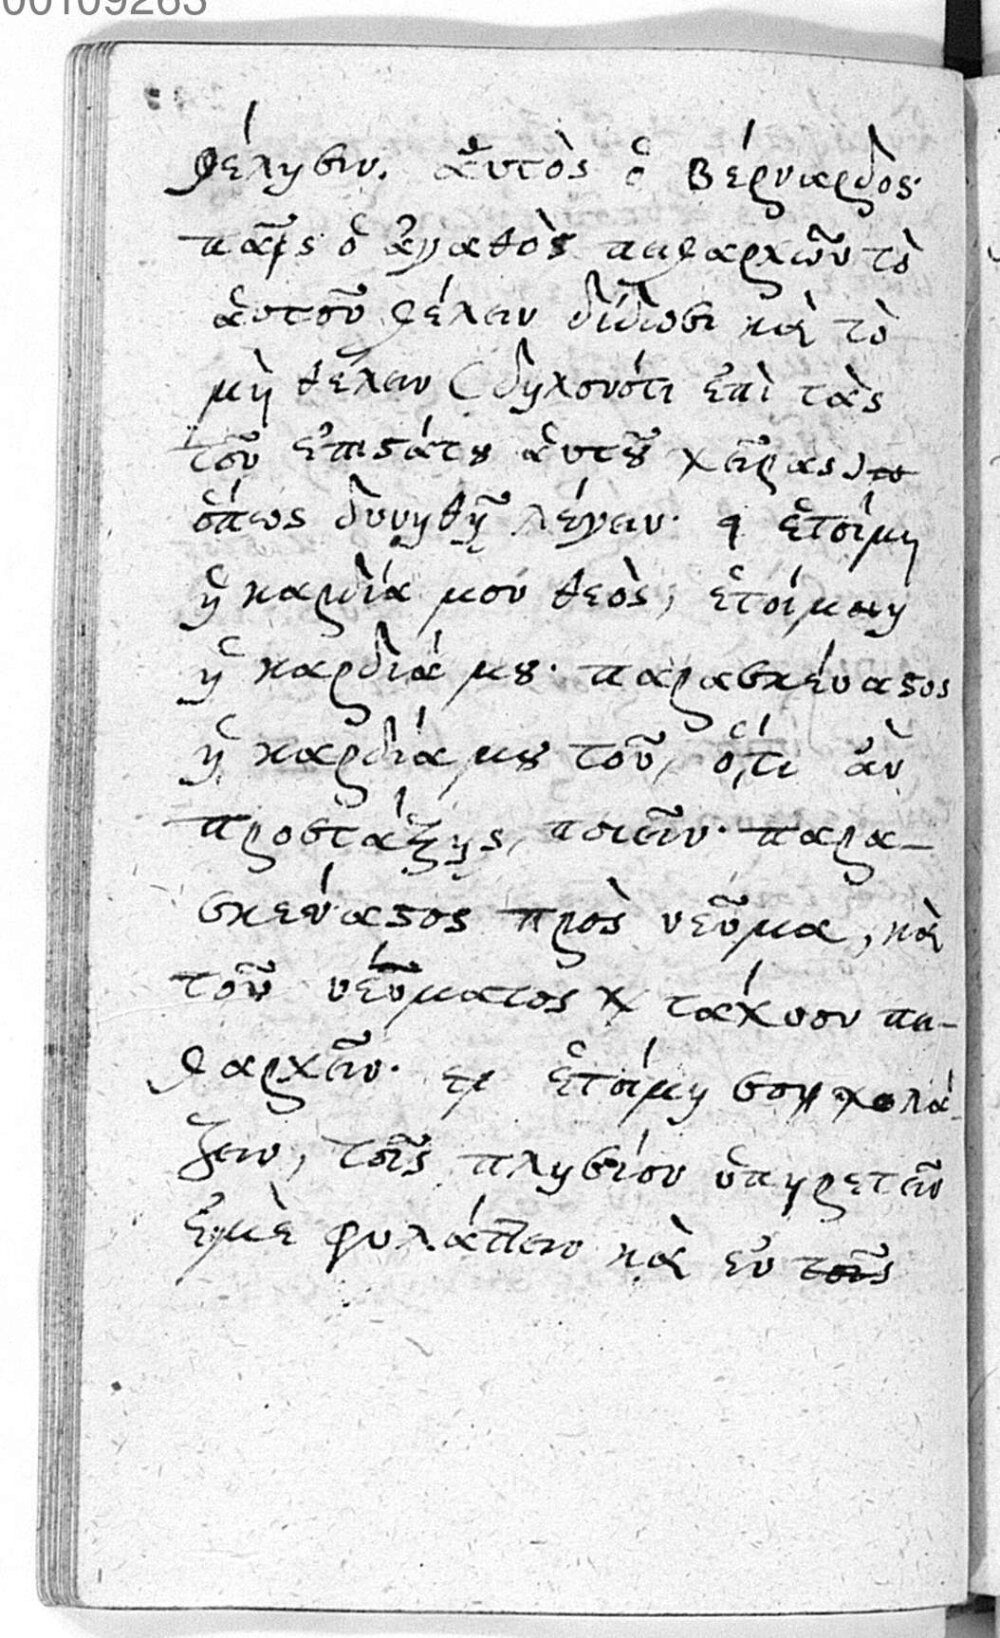 00109263
θέλησιν. ἀυτὸς ὁ Βέρναρδὸς·
πᾶς ὁ ἀγαθὸς πειθαρχῶν τὸ
ἀυτοῦ θέλειν δίδωσι καὶ τὸ
μὴ θέλειν (δηλονότι ἐπὶ τὰς
τοῦ ἐπιστάτου ἀυτοῦ χεῖρας)
ὅπως δυνηθῇ λέγειν· ἑτοίμη
ἡ καρδία μου θεὸς, ἑτοίμη
ἡ καρδιά μου· παρασκέυαστος
ἡ καρδιά μου τοῦ, ὅ,τι ἀν
προστάξῃς, ποιεῖν· παρα-
σκεύαστος πρὸς νεῦμα, καὶ
τοῦ νεύματος τάχιον πει-
θαρχεῖν. ἑτοίμη σοι χολά-
ζειν, τοῖς πλησίον ὑπηρετεῖν
ἐμὲ φυλάττειν καὶ ἐν τοῖς